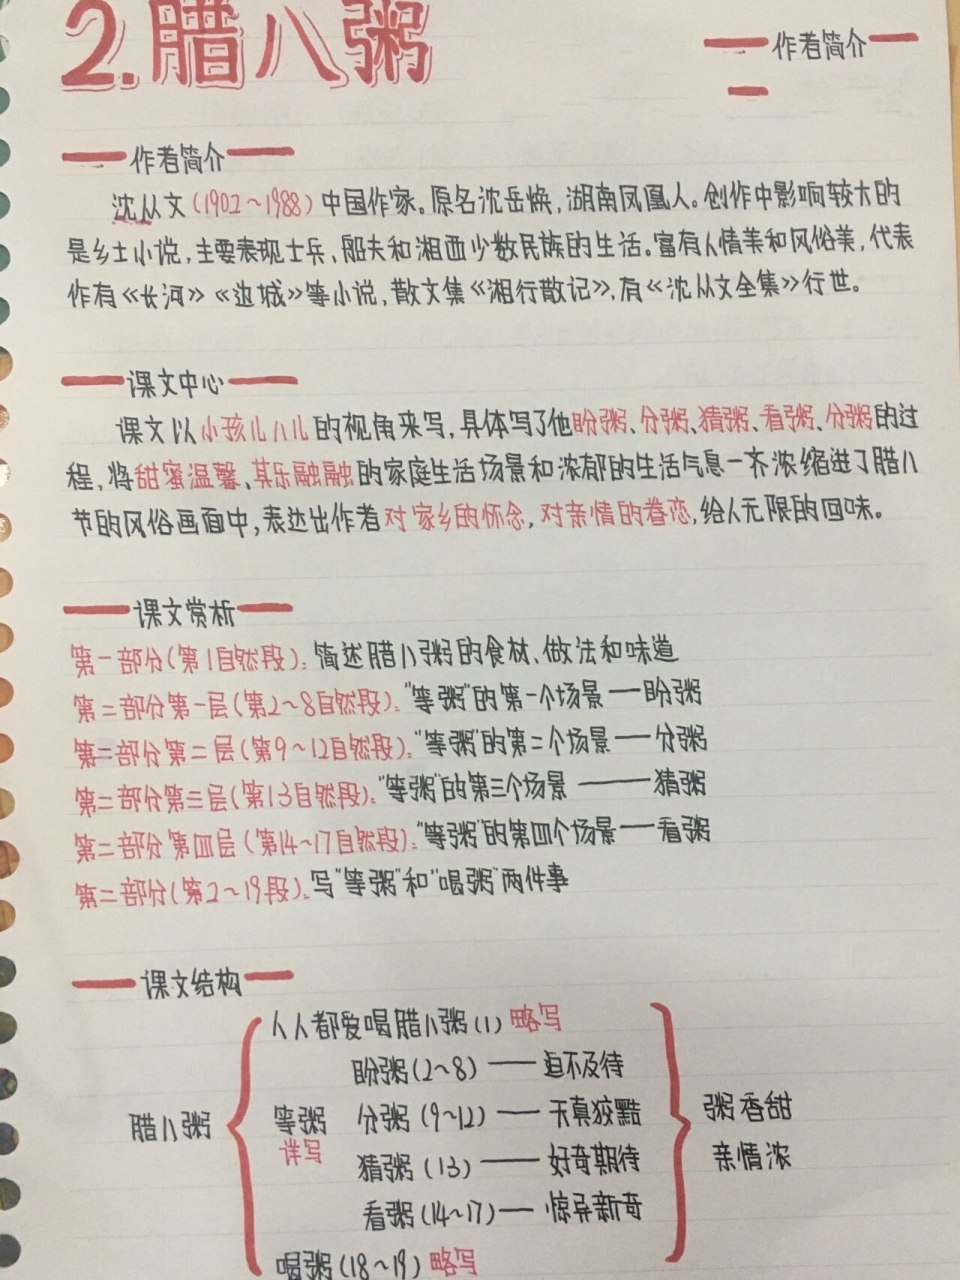 2.腊八粥
作者简介
作者简介
沈从文(1902~1988)中国作家。原名沈岳焕,湖南凤凰人。创作中影响较大的
是乡土小说,主要表现士兵、船夫和湘西少数民族的生活。富有人情美和风俗美,代表
作有《长河》《边城》等小说,散文集《湘行散记》,有《沈从文全集》行世。
课文中心
课文以小孩儿八儿的视角来写,具体写了他盼粥、分粥、猜粥、看粥、分粥的过
程,将甜蜜温馨、其乐融融的家庭生活场景和浓郁的生活气息一齐浓缩进了腊八
节的风俗画面中,表达出作者对家乡的怀念,对亲情的眷恋,给人无限的回味。
课文赏析
第一部分(第1自然段):简述腊八粥的食材、做法和味道
第二部分第一层(第2~8自然段):"等粥"的第一个场景——盼粥
第二部分第二层(第9~12自然段):"等粥"的第二个场景——分粥
第二部分第三层(第13自然段):"等粥"的第三个场景——猜粥
第二部分第四层(第14~17自然段):"等粥"的第四个场景——看粥
第二部分(第2~19段):写"等粥"和"喝粥"两件事
课文结构
人人都爱喝腊八粥(1)略写
盼粥(2~8)——迫不及待
腊八粥 等粥 分粥(9~12)——天真狡黠 粥香甜
详写 猜粥(13)——好奇期待 亲情浓
看粥(14~17)——惊异新奇
喝粥(18~19)略写